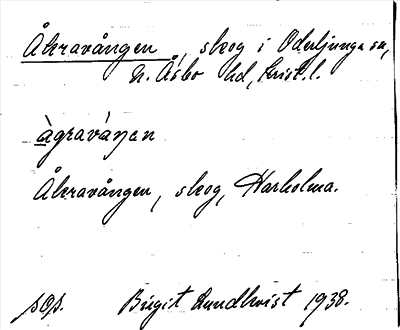 Åkravången, skog i Oderljunga sn,
N. Åsbo hd, Krist. l.
àgraváŋen
Åkravången, skog, Harholma.
Birgit Lundkvist 1938.